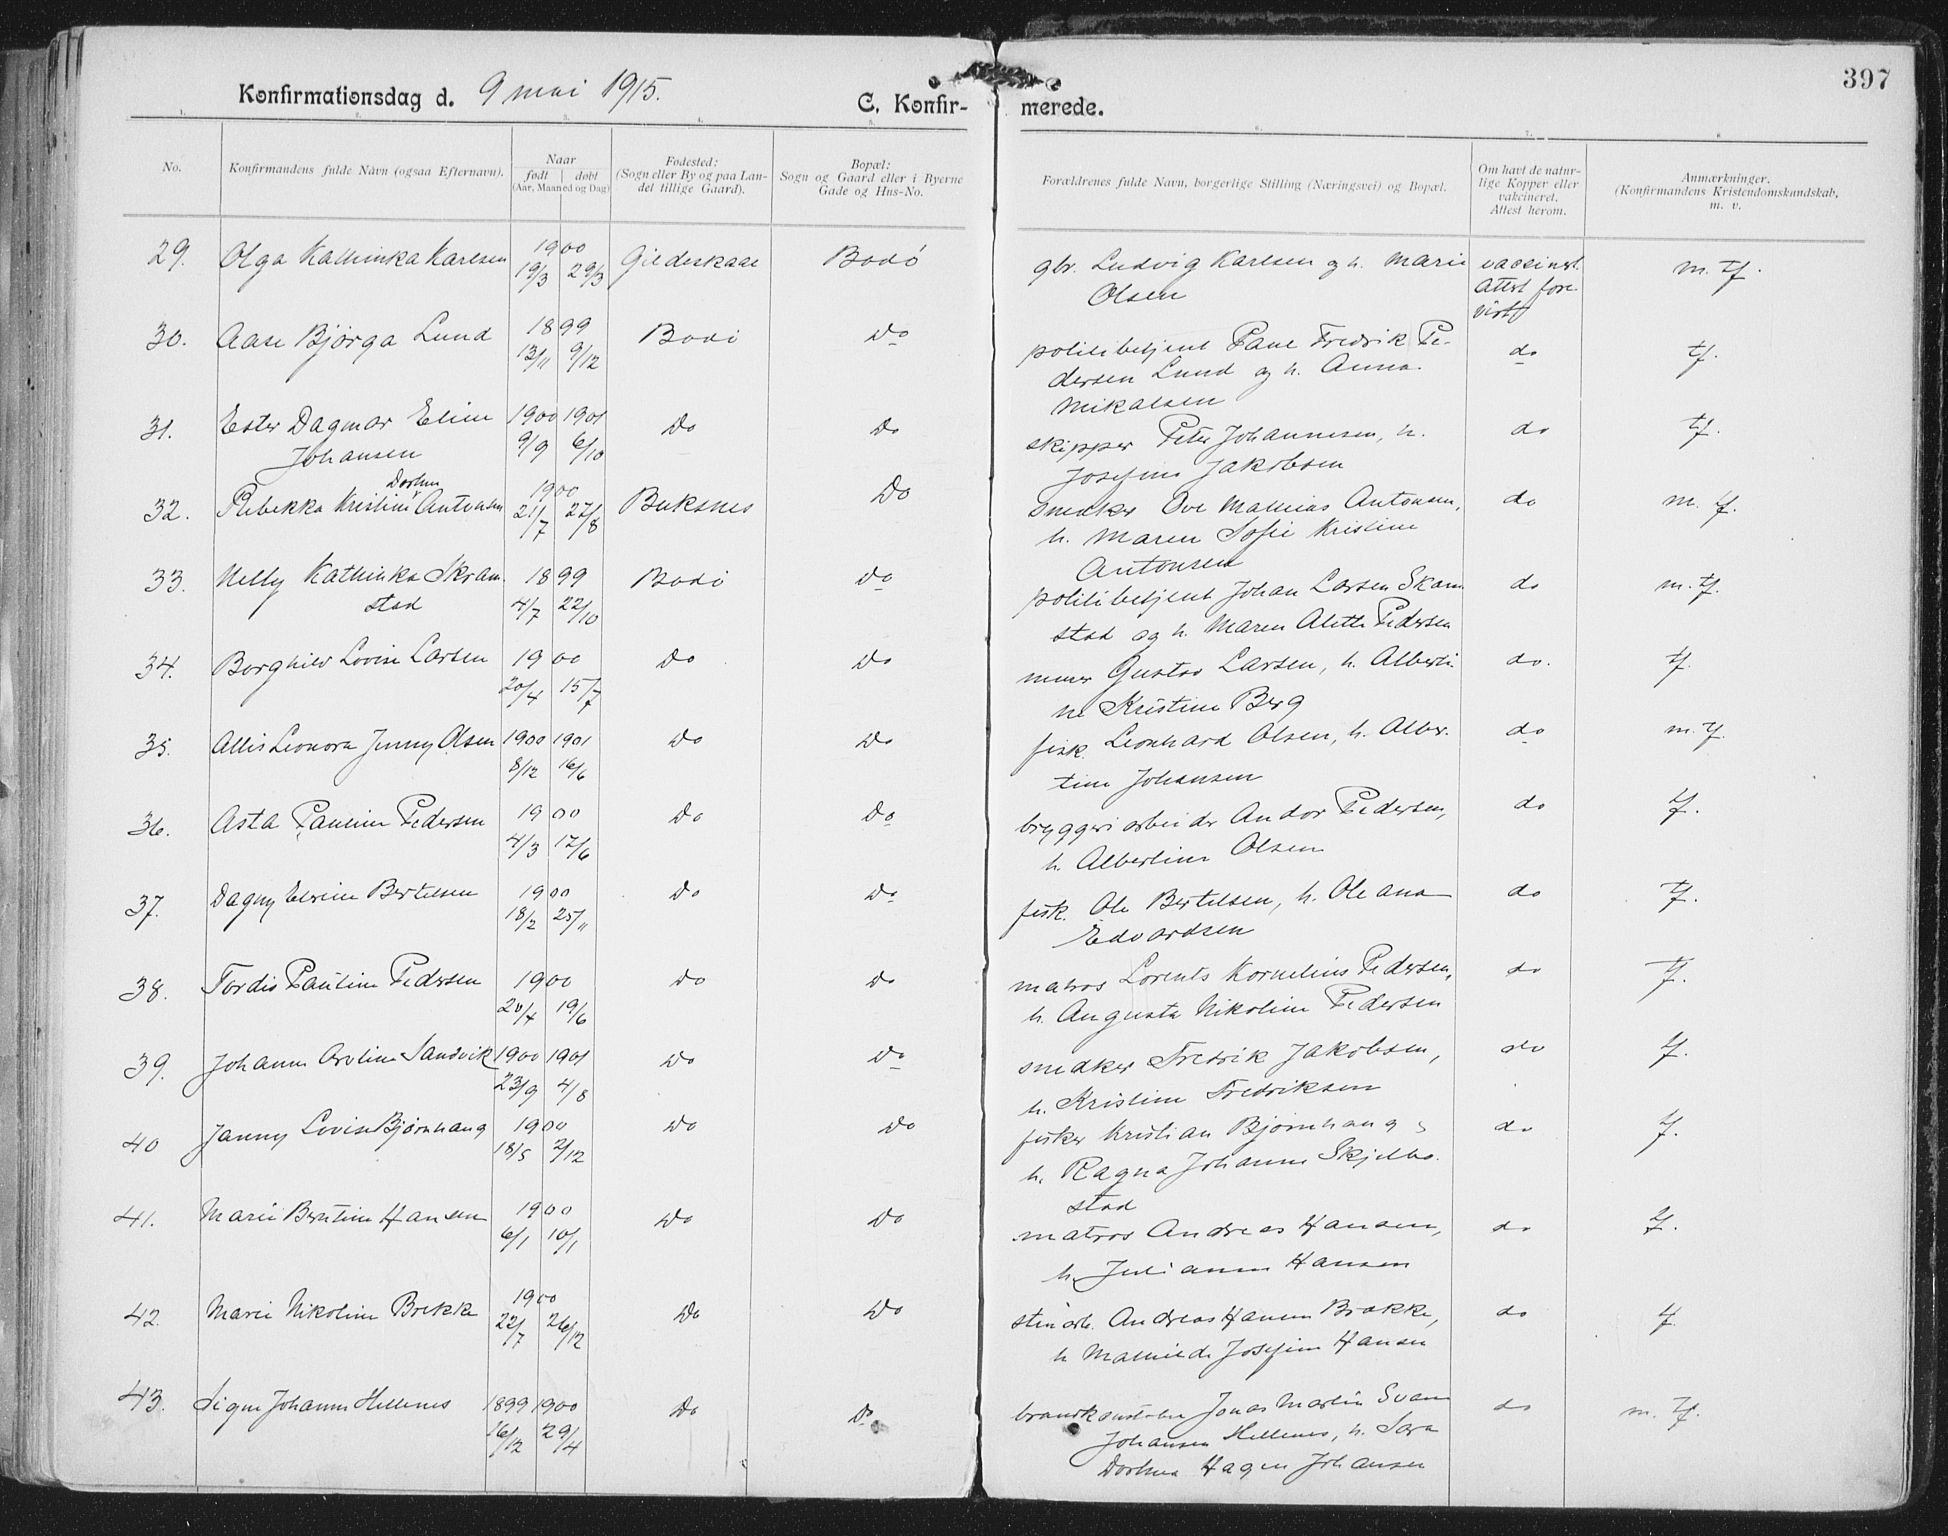 397
Konfirmationsdag d. 9 mai 1915.
C. Konfir- merede.
1. 2. 3. 4. 5. 6. 7. 8.
No.
Konfirmandens fulde Navn (ogsaa Efternavn).
Naar
født døbt
(Aar, Maaned og Dag)
Fødested:
(Sogn eller By og paa Lan-
det tillige Gaard).
Bopæl:
Sogn og Gaard eller i Byerne
Gade og Hus-No.
Forældrenes fulde Navn, borgerlige Stilling (Næringsvei) og Bopæl.
Om havt de natur-
lige Kopper eller
vakcineret.
Attest herom.
Anmærkninger.
(Konfirmandens Kristendomskundskab,
m. v.
29. Olga Kathinka Karlsen 1900 19/3 29/3 Gildeskaal Bodö gbr. Ludvig Karlsen og h. Marie vaccinert. m. tf.
Olsen attest fore-
vist
30. Aase Bjørga Lund 1899 13/11 9/12 Bodö Do politibetjent Paul Fredrik Pe- do tf.
dersen Lund og h. Anna
Mikalsen
31. Ester Dagmar Eline 1900 1901 9/9 6/10 Do Do skipper Peter Johannesen, h. do tf.
Johansen Josefine Jakobsen
32. Rebekka Kristine Dorthea Antonsen 1900 21/7 27/8 Buksnes Do snedker Ove Mathias Antonsen, do m. tf.
h. Maren Sofie Kristine
Antonsen
33. Nelly Kathinka Skram- 1899 4/7 22/10 Bodö Do politibetjent Johan Larsen Skam- do m. tf.
stad stad og h. Maren Alette Pedersen
34. Borghild Lovise Larsen 1900 20/4 15/7 Do Do murer Gustav Larsen, h. Alberti- do. tf.
ne Kristine Berg
35. Allis Leonora Jenny Olsen 1900 1901 8/12 16/6 Do Do fisk. Leonhard Olsen, h. Alber- do m. tf.
tine Johansen
36. Asta Pauline Pedersen 1900 4/3 17/6 Do Do bryggeriarbeider Andor Pedersen, do tf.
h. Albertine Olsen
37. Dagny Elvine Bertelsen 1900 18/2 25/11 Do Do fisk. Ole Bertelsen, h. Oleana do tf.
Edvardsen
38. Tordis Pauline Pedersen 1900 20/4 19/6 Do Do matros Lorents Kornelius Pedersen, do tf.
h. Augusta Nikoline Pedersen
39. Johanne Oroline Sandvik 1900 1901 23/9 4/8 Do Do snedker Fredrik Jakobsen, do tf.
h. Kristine Fredriksen
40 Janny Lovise Bjørnhaug 1900 18/5 2/12 Do Do fisker Kristian Bjørnhaug, do tf.
h. Ragna Johanne Skjelbo-
stad
41. Marie Berntine Hansen 1900 6/1 10/1 Do Do matros Andreas Hansen, do tf.
h. Julianne Hansen
42. Marie Nikoline Brekke 1900 22/7 26/12 Do Do stenarb. Andreas Hansen Brække, do tf.
h Mathilde Josefine Hansen
43. Signe Johanne Hellenes 1899 1900 16/12 29/4 Do Do brandkonstabel Jonas Martin Svane do m. tf.
Johansen Hellenes, h. Sara
Dorthea Hagen Johansen